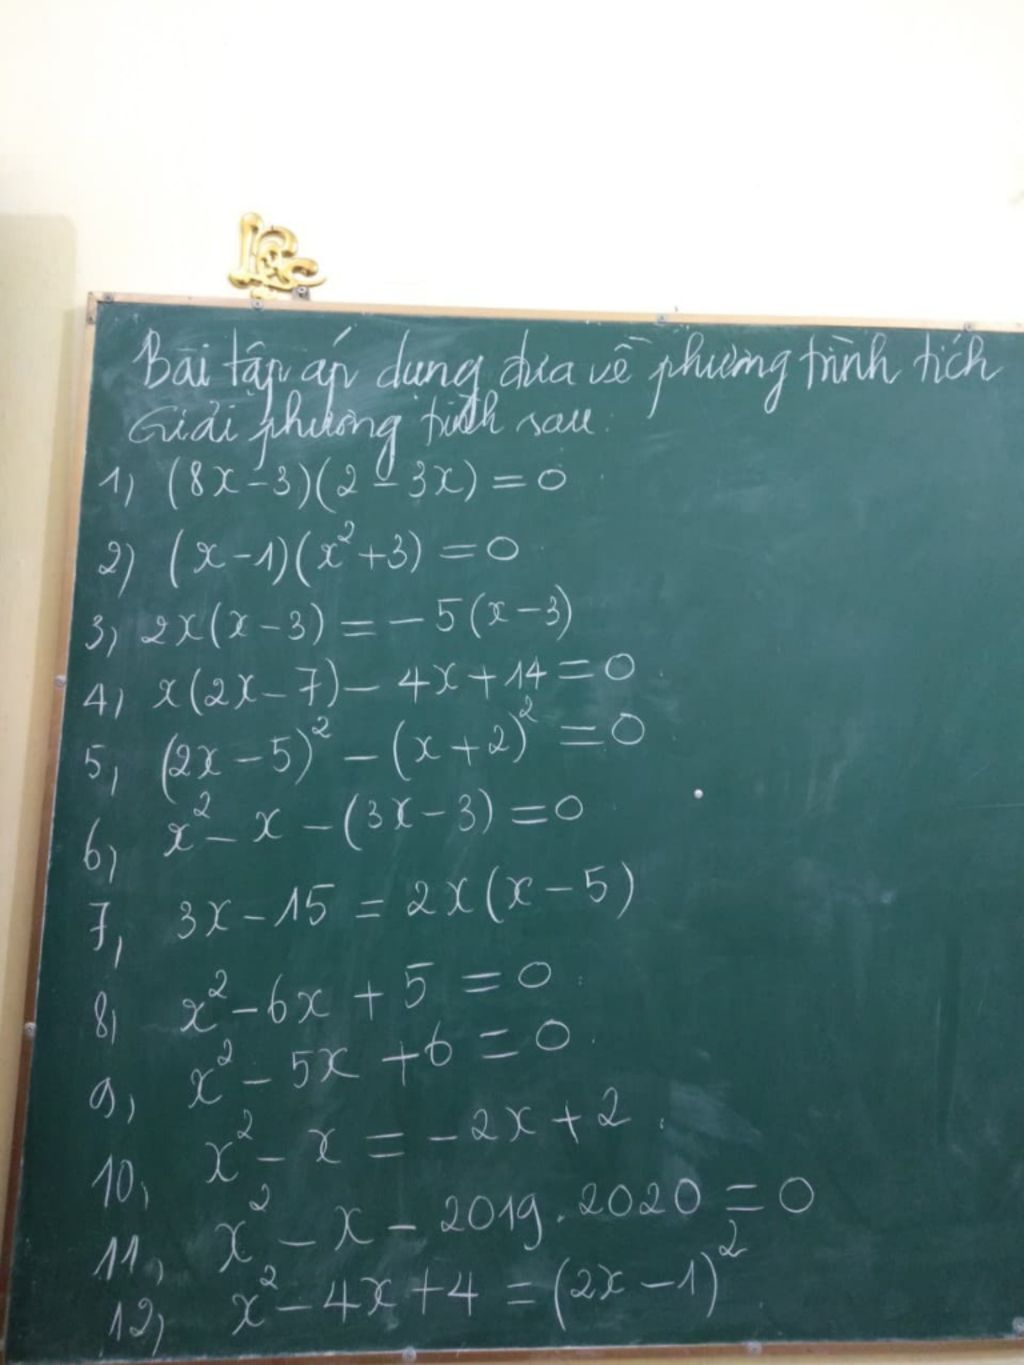 Bài tập áp dụng đưa về phương trình tích
Giải phương trình sau:
1) (8x-3)(2-3x)=0
2) (x-1)(x²+3)=0
3) 2x(x-3)=-5(x-3)
4) x(2x-7)-4x+14=0
5) (2x-5)²-(x+2)²=0
6) x²-x-(3x-3)=0
7) 3x-15=2x(x-5)
8) x²-6x+5=0
9) x²-5x+6=0
10) x²-x=-2x+2
11) x²-x-2019.2020=0
12) x²-4x+4=(2x-1)²